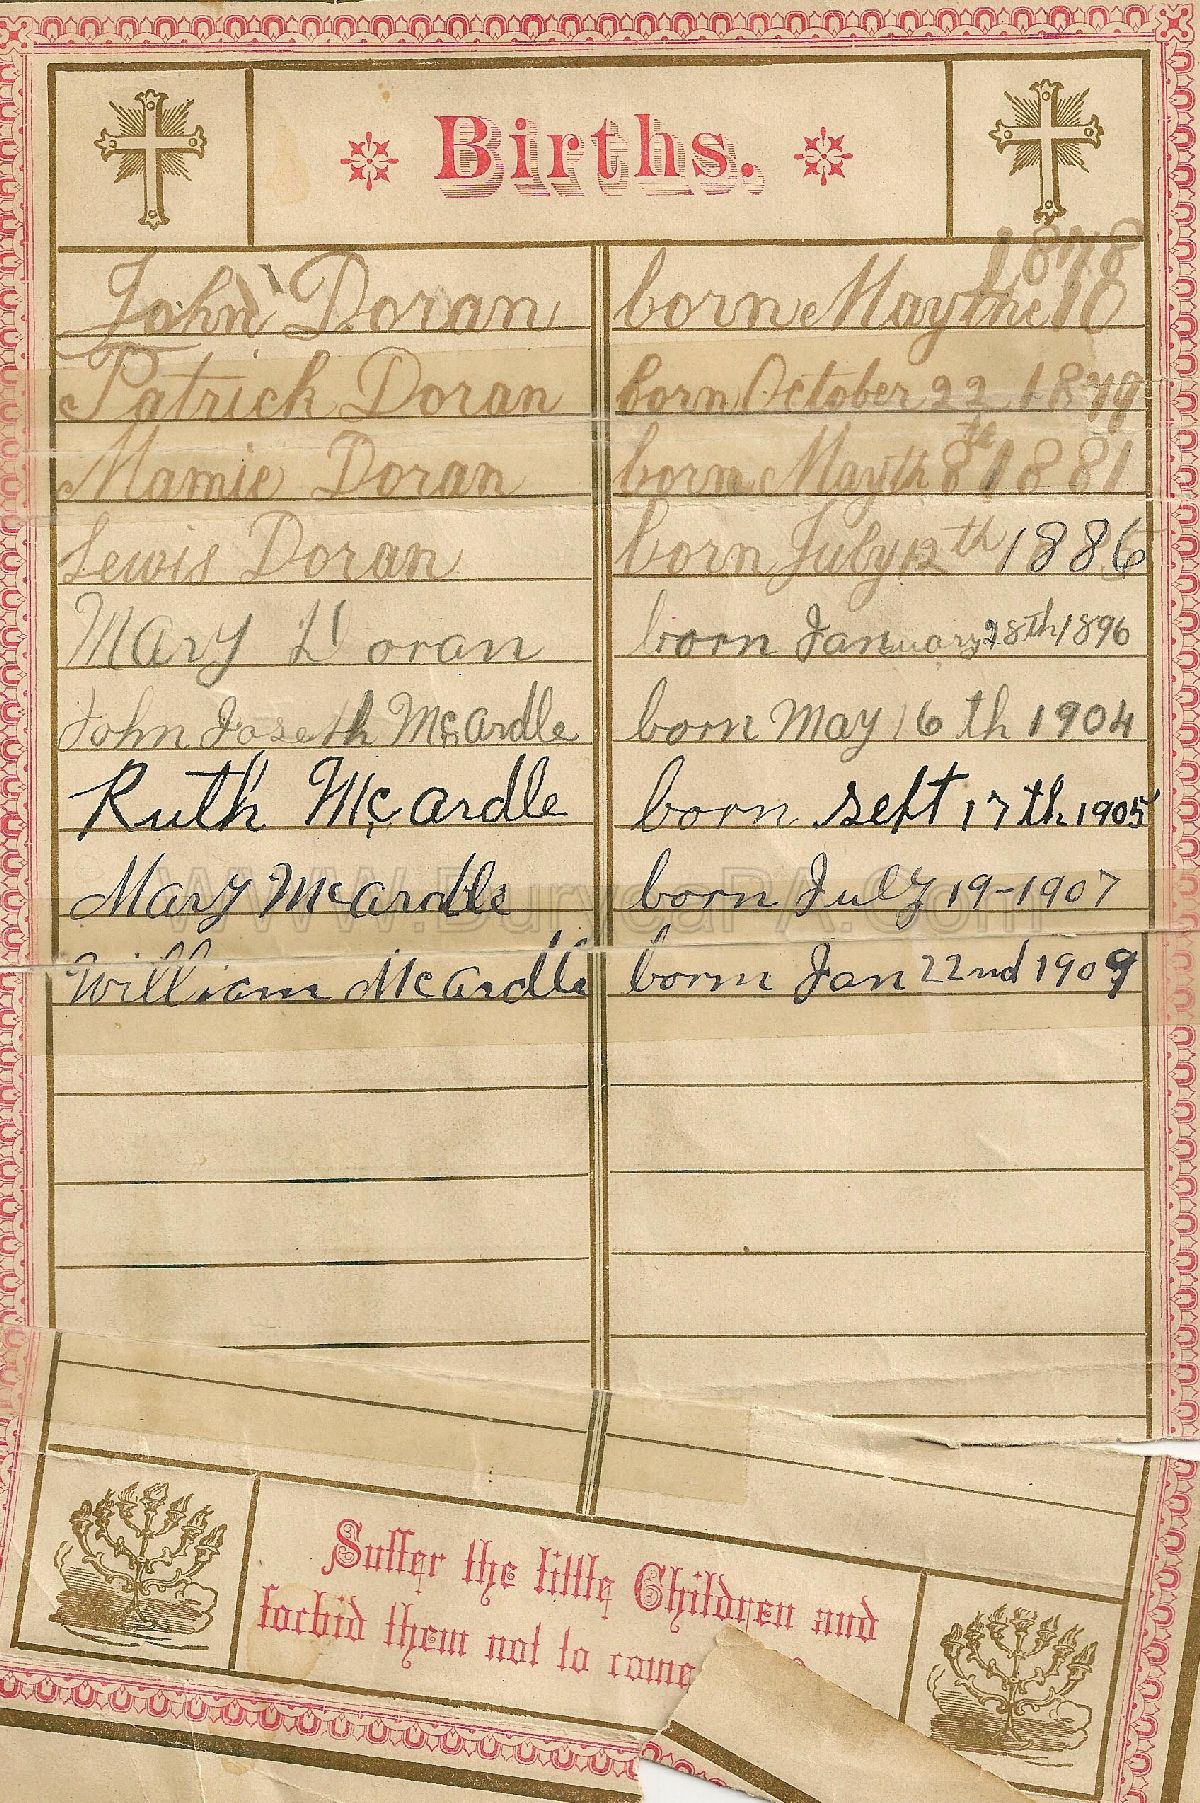 Births.
John Doran born May the 18 1878
Patrick Doran born October 22 1879
Mamie Doran born May th 8th 1881
Lewis Doran born July 12th 1886
Mary Doran born January 28th 1896
John Joseth McArdle born May 16th 1904
Ruth McArdle born Seft 17th 1905
Mary McArdle born July 19-1907
William McArdle born Jan 22nd 1909
WWW.DuryeaPA.Com
Suffer the little Children and
forbid them not to come